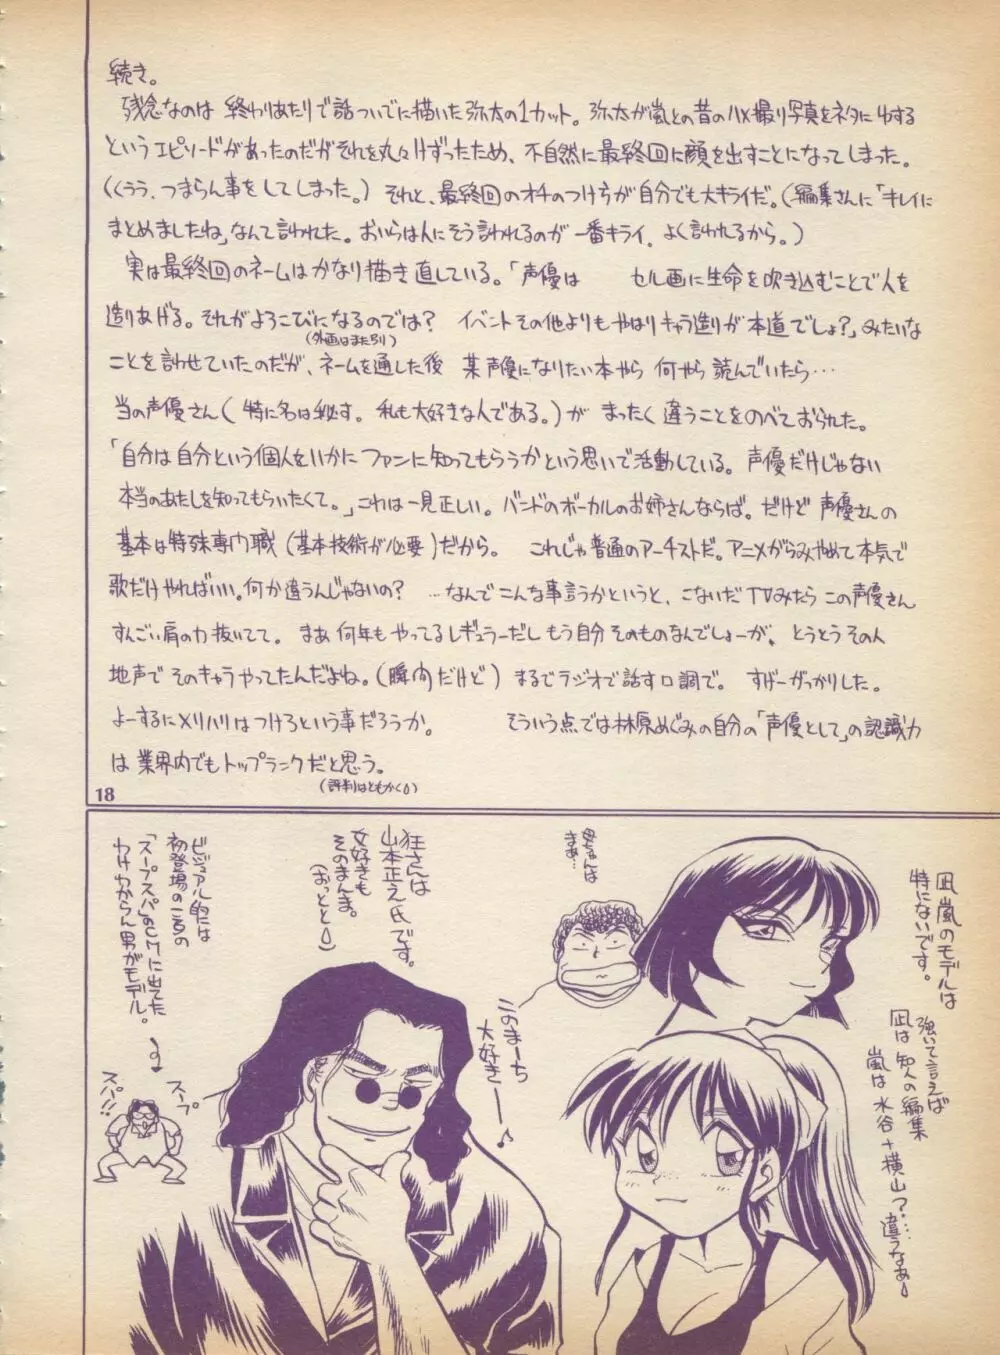 続き。
残念なのは 終わりあたりで話ついでに描いた弥太の1カット。弥太が嵐との昔のハメ撮り写真をネタにゆする
というエピソードがあったのだがそれを丸々けずったため、不自然に最終回に顔を出すことになってしまった。
(くうう、つまらん事をしてしまった。) それと、最終回のオチのつけ方が自分でも大キライだ。(編集さんに「キレイに
まとめましたね」なんて言われた。おいらは人にそう言われるのが一番キライ。よく言われるから。)
実は最終回のネームはかなり描き直している。「声優は セル画に生命を吹き込むことで人を
造りあげる。それがよろこびになるのでは? イベントその他よりもやはりキャラ造りが本道でしょ?」みたいな
(外画はまた別り)
ことを言わせていたのだが、ネームを通した後 某声優になりたい本やら 何やら 読んでいたら…
当の声優さん(特に名は秘す。私も大好きな人である。)が まったく違うことをのべておられた。
「自分は自分という個人をいかにファンに知ってもらうかという思いで活動している。声優だけじゃない
本当のあたしを知ってもらいたくて。」これは一見正しい。バンドのボーカルのお姉さんならば。だけど 声優さんの
基本は特殊専門職(基本技術が必要)だから。 これじゃ普通のアーチストだ。アニメがらみやめて本気で
歌だけやればいい。何か違うんじゃないの? …なんでこんな事言うかというと、こないだTVみたら この声優さん
すんごい肩の力抜いてて。まあ何年もやってるレギュラーだしもう自分そのものなんでしょーが、とうとうその人
地声でそのキャラやってたんだよね。(瞬間だけど) まるでラジオで話す口調で。 すげーがっかりした。
よーするにメリハリはつけろという事だろうか。 そういう点では林原めぐみの自分の「声優として」の認識力
は業界内でもトップランクだと思う。
(評判はともかく)
18
凪嵐のモデルは
特にないです。
強いて言えば
凪は 知人の編集
嵐は 水谷+横山?…
違うなあ
母さんは
まあ…
このまーち
大好きーー♪
狂さんは
山本正之氏です。
女好きも
そのまんま。
(おっとと)
ビジュアル的には
初登場の一言の
「スープスパ」のCMに出てた
わけわからん男がモデル。
スープ
スパ!!